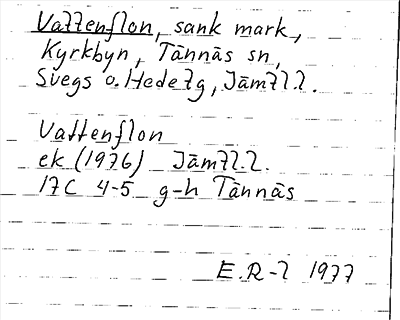 Vattenflon, sank mark,
Kyrkbyn, Tännäs sn,
Svegs o. Hede tg, Jämtl.l.
Vattenflon
ek (1976) Jämtl.l.
17C 4-5 g-h Tännäs
E.R-l 1977